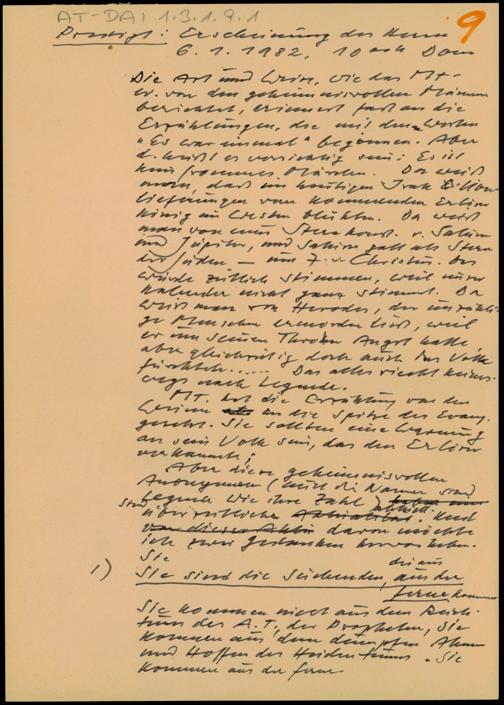 AT-DAI 1.3.1.9.1
9
Predigt: Erscheinung des Herrn
6.1.1982, 10 Dom
Die Art und Weise, wie das Mt-
ev. von den geheimnisvollen Männern
berichtet, erinnert fast an die
Erzählungen, die mit den Worten
"Es war einmal" beginnen. Aber
d. heißt es vorsichtig sein: Es ist
kein frommes Märchen. Da weiß
man, daß im heutigen Irak
lieferungen vom kommenden Erlöser
König im Westen blühten. Da weiß
man von einer v. Saturn
und Jupiter, und Saturn galt als Stern
der Juden – um 7. v. Christus. Das
würde zeitlich stimmen, weil unser
Kalender nicht ganz stimmt. Da
weiß man von Herodes, der unzähli-
ge Menschen ermorden ließ, weil
er um seinen Thron Angst hatte
aber gleichzeitig doch auch das Volk
fürchtete..... Das alles riecht keines-
wegs nach Legende.
Mt. hat die Erzählung von den
Weisen an die Spitze des Evang.
gesetzt. Sie sollten eine Warnung
an sein Volk sein, das den Erlöser
verkannte;
Aber diese geheimnisvollen
Anonymen (nicht die Namen sind
Legende wie ihre Zahl)
sind überzeitliche aktuell. Und
davon möchte
ich zwei Gedanken hervorheben.
Sie
1) Sie sind die Suchenden, die aus der
Ferne kommen
Sie kommen nicht aus dem Reich-
tum des A.T., der Propheten, sie
kommen aus dem dumpfen Ahnen
und Hoffen des Heidentums. Sie
kommen aus der Ferne